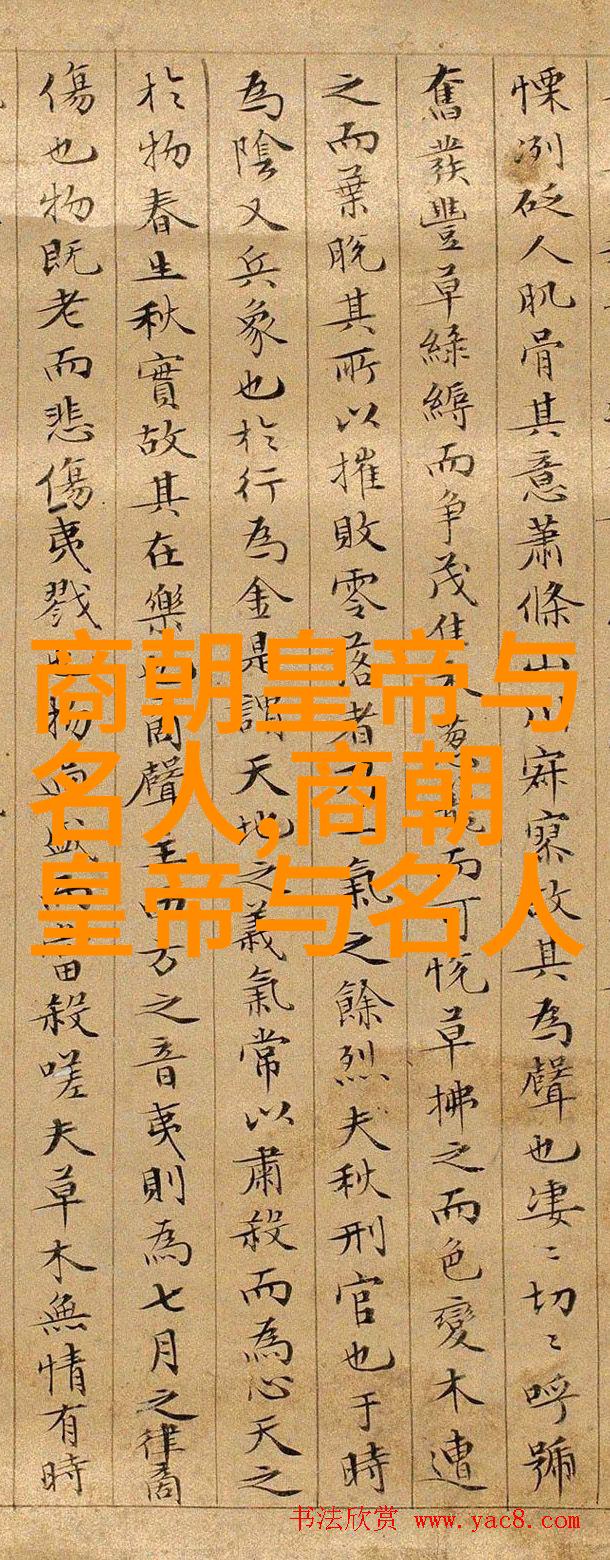 慄冽砭人肌骨其意蕭條山川寂寥故其為聲也凄〻切〻呼號
奮發豐草綠縟而争茂佳木葱蘢而可悅草拂之而色變木遭
之而葉脫其所以摧敗零落者乃一氣之餘烈夫秋刑官也于時
為陰又兵象也於行為金是謂天地之義氣常以肅殺而為心天之
於物春生秋實故其在樂也商聲主西方之音夷則為七月之律商
傷也物既老而悲傷夷戮也物過盛而當殺嗟夫草木無情有時
商朝皇帝与
名人,商朝
皇帝与名人
书法欣赏 www.yac8.com